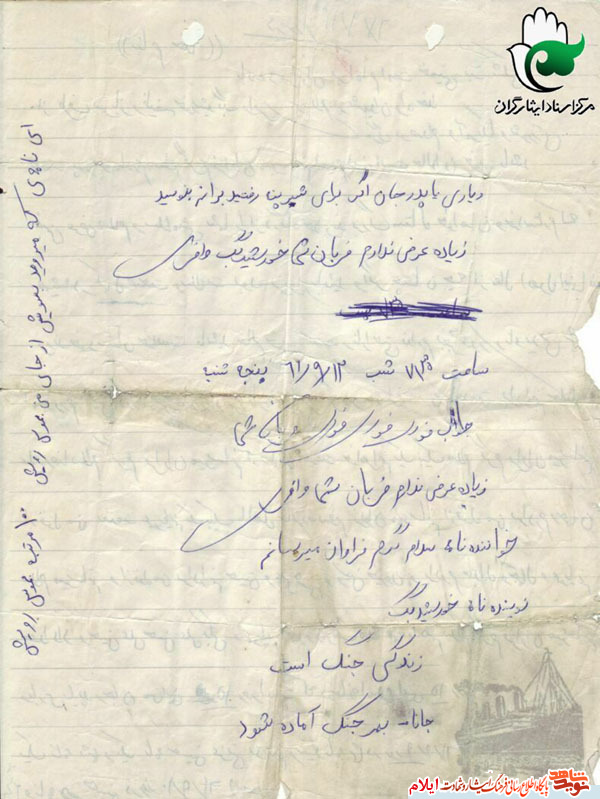 مرکز اسناد ایثارگران
دیداری با پدرجان اگر برای شیر پنیر رفتید برایم بنویسید
زیاده عرض ندارم قربان شما خورشید بگ وافری
ساعت ۷/۳۰ شب ۶۱/۹/۱۲ پنجه شنبه
جواب فوری فوری فوری شما
زیاده عرض ندارم قربان شما وافری
خواننده نامه سلام گرم فراوان میرسانم
نویسنده نامه خورشید بگ
زندگی جنگ است
جانا بهر جنگ آماده شو
ای نامه‌ی که میروی بسویش از جای من ببوس رویش ۱۰۰ مرتبه ببوس رویش
نوید شاهد
پایگاه اطلاع رسانی فرهنگ ایثار و شهادت ایلام